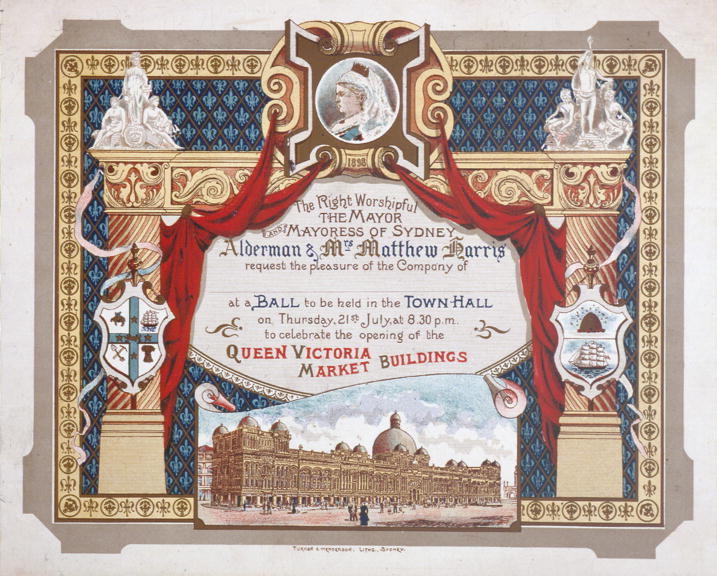 1898
The Right Worshipful
THE MAYOR
AND MAYORESS OF SYDNEY
Alderman & Mrs Matthew Harris
request the pleasure of the Company of
at a BALL to be held in the TOWN HALL
on Thursday, 21st July, at 8.30 p.m.
to celebrate the opening of the
QUEEN VICTORIA
MARKET BUILDINGS
TURNER & HENDERSON, LITHO., SYDNEY.